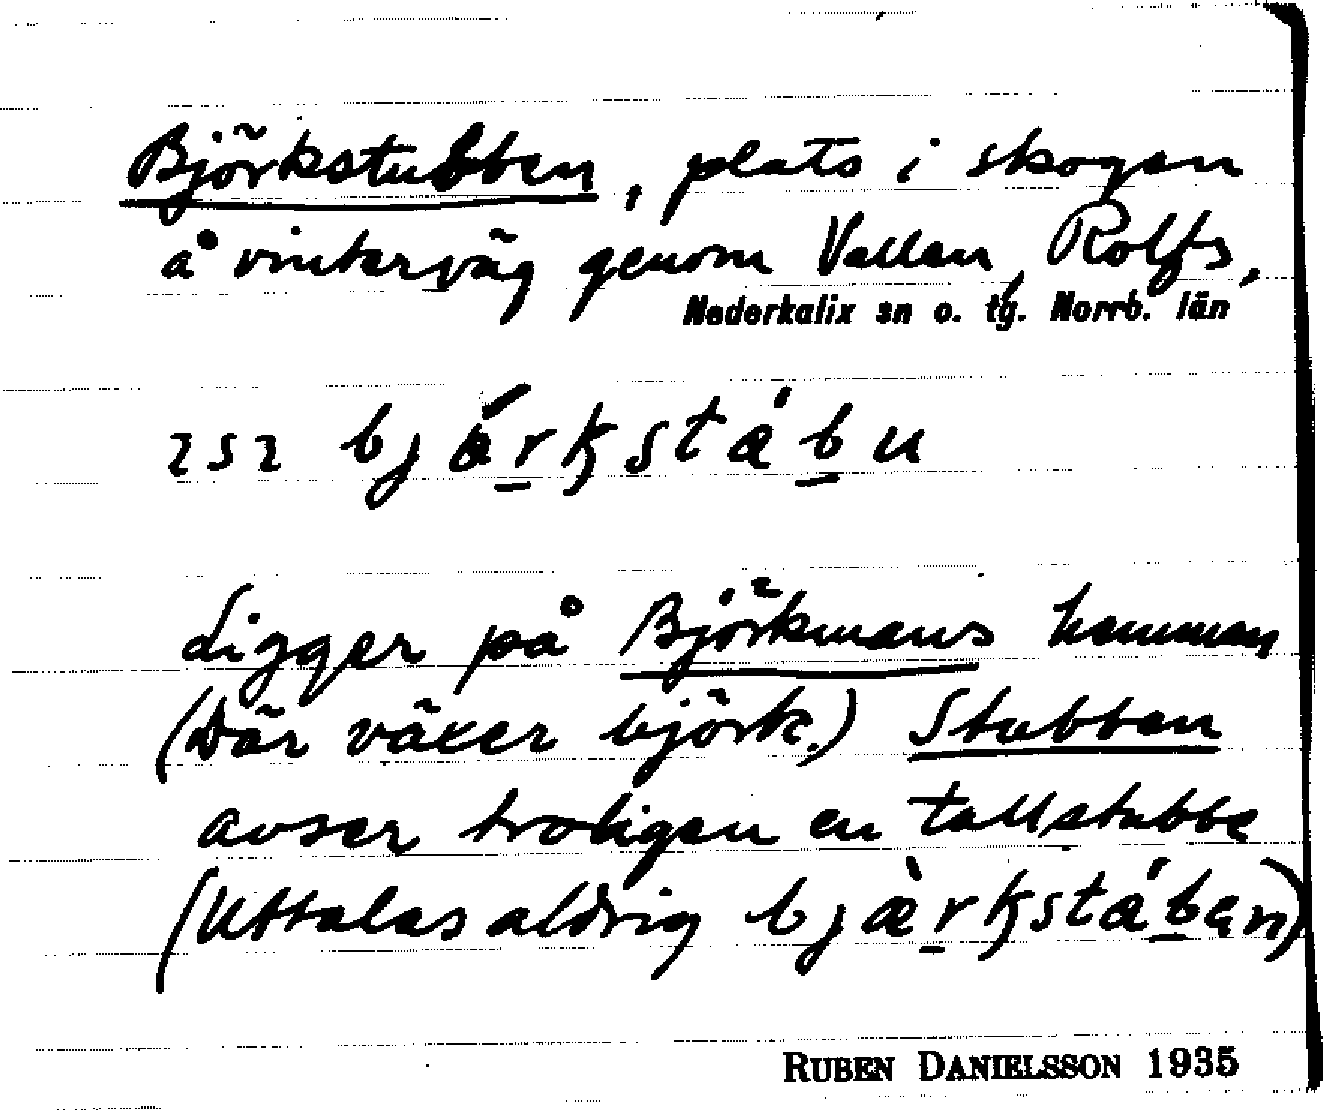 Björkstubben, plats i skogen
å vinterväg genom Vallen, Rolfs,
Nederkalix sn o. tg. Norrb. län
252 bjærkstábu
Ligger på Björkmans hemman
(Där växer björk.) Stubben
avser troligen en tallstubbe
(Uttalas aldrig bjæ̀rkstáben)
RUBEN DANIELSSON 1935